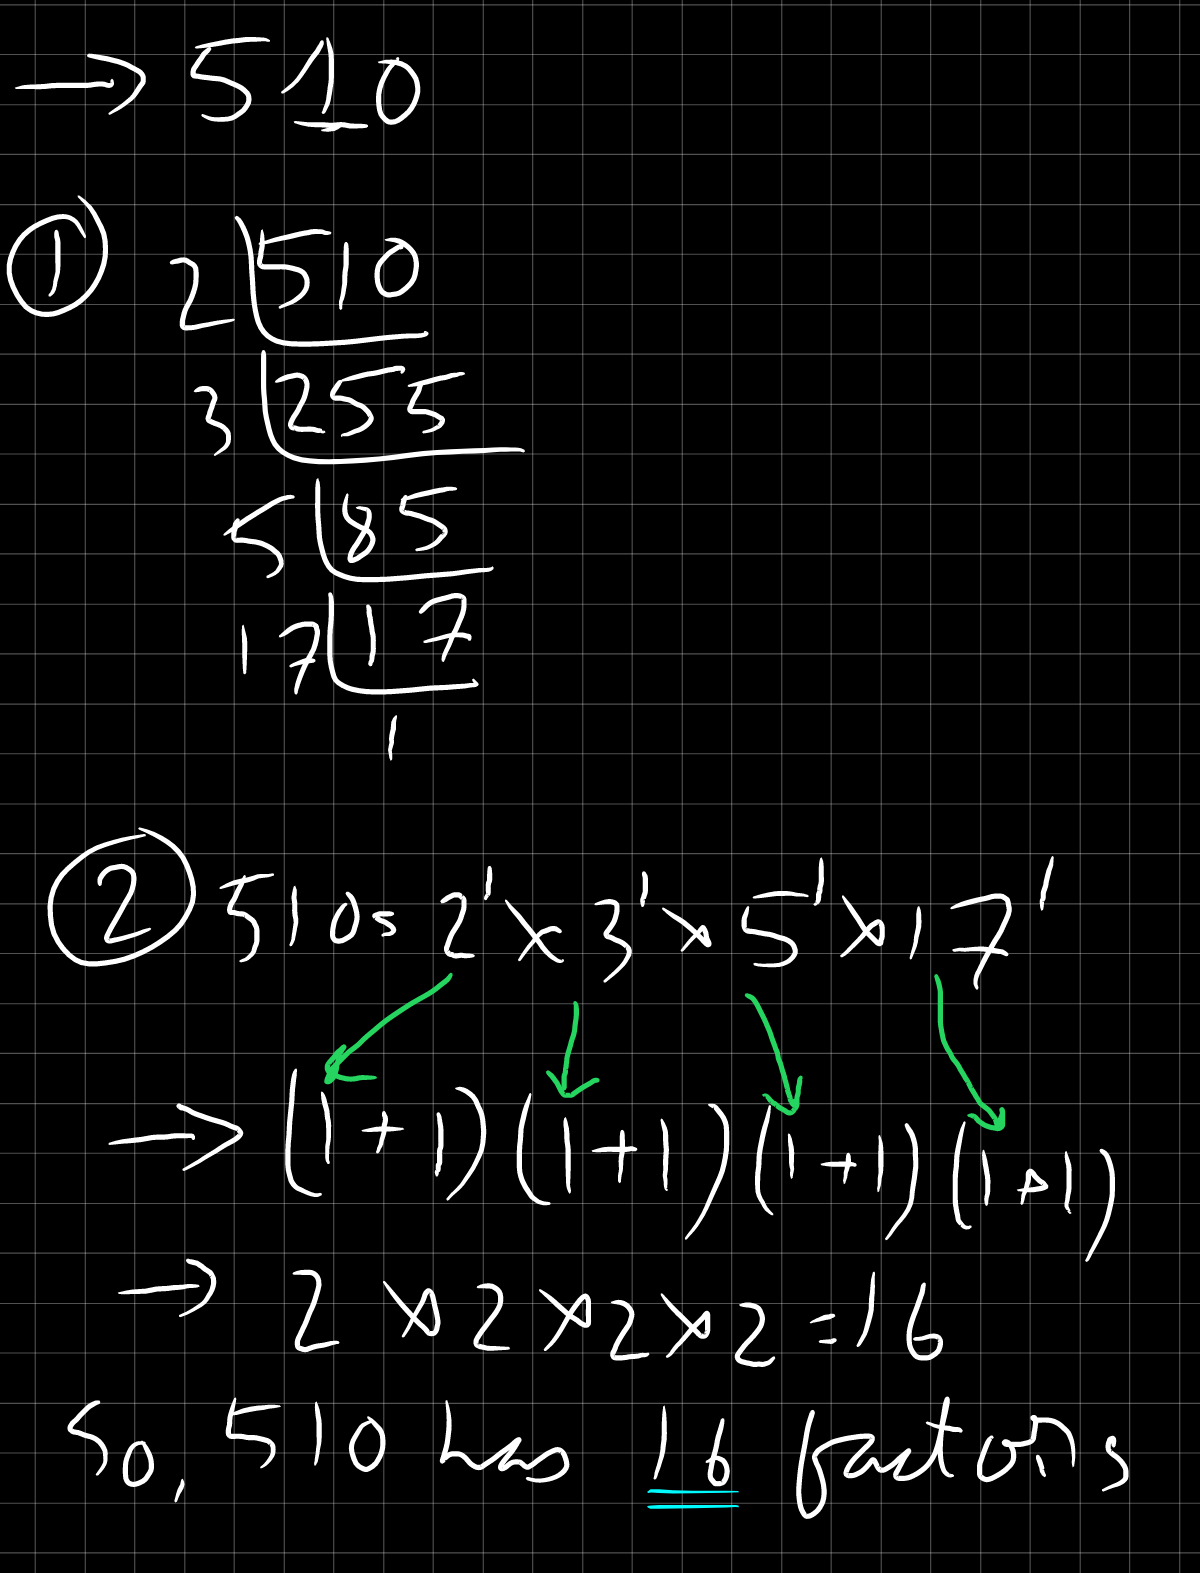 → 510
① 2 | 510
3 | 255
5 | 85
17 | 17
1
② 510 = 2¹ × 3¹ × 5¹ × 17¹
→ (1+1)(1+1)(1+1)(1+1)
→ 2 × 2 × 2 × 2 = 16
So, 510 has 16 factors